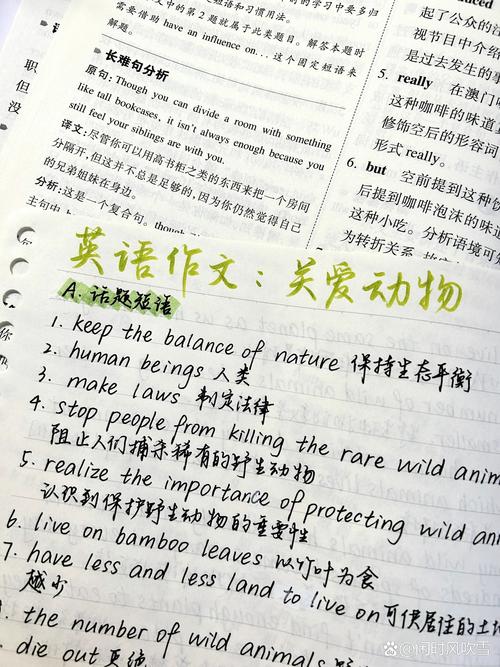 的学习中要多归
文中的第2题就属于此类题目。解答本题时
需要借助 have an influence on...这个固定短语来
解题。
长难句分析
原句:Though you can divide a room with something
like tall bookcases, it isn't always enough because you
still feel your siblings are with you.
译文:尽管你可以用高书柜之类的东西来把一个房间
分隔开,但这并不总是足够的,因为你仍然觉得自己
的兄弟姐妹在身边。
分析:这是一个复合句。though
主句中
职
但
没
起了公众的
视节目中介绍
是过去发生的事
5. really 在澳门
这种咖啡的味道
修饰空后的形容词
形式 really。
6. but 空前提到这种饮
后提到咖啡泡沫的味道
这种小吃。分析语境可
为转折关系
英语作文:关爱动物
A. 话题短语
1. keep the balance of nature 保持生态平衡
2. human beings 人类
3. make laws 制定法律
4. stop people from killing the rare wild anim
阻止人们捕杀稀有的野生动物
5. realize the importance of protecting wild ani
认识到保护野生动物的重要性
6. live on bamboo leaves 以竹叶为食
7. have less and less land to live on 可供居住的土
越少
the number of wild animals
die out 灭绝
@闲时风吹雪